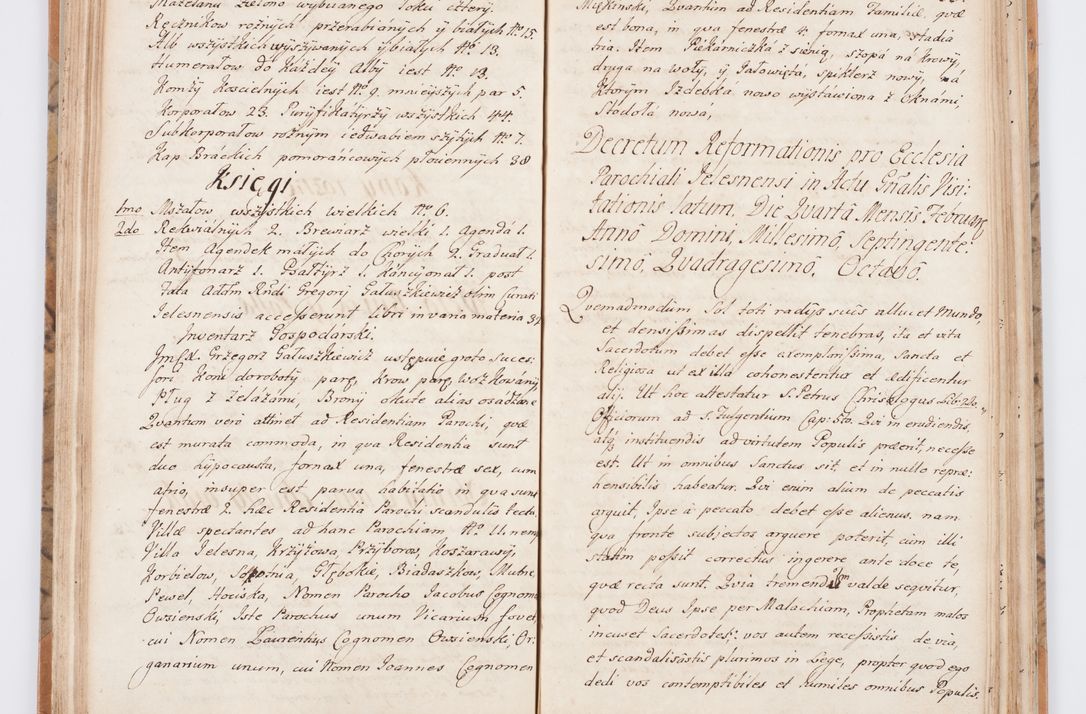 Materãnu zielono wybijanego łoku cztery.
Ręcznikow rożnych przerabianych ÿ białych Nº 15.
Alb wszystkich wyszywanych ÿ białych Nº 13.
Humerałow do Każdéy Alby iest Nº 13.
Komży Koscielnych iest Nº 9. mnieyszych par 5.
Korporałow 23. Puryfikatyrzy wszystkich 44.
Subkorporałow rożnym iedwabiem szytych Nº 7.
Kap Bráckich pomoráńcowych płociennych 38
Księgi
1mo Mszałow wszystkich wielkich Nº 6.
2do Rekwiálnych 2. Brewiarz wielki 1. Agendá 1.
Item Agendek małych do Chorych 2. Graduał 1.
Antyfonarz 1. Psałtyrz 1. Káncyonał 1. post
fata Adm Rñdi Gregorij Gałuszkiewicz olim Curati
Jelesnensis acceßerunt libri in varia materia 34
Inwentarz Gospodárski.
JmX. Grzegorz Gałuszkiewicz ustępuie grōto Suces:
sori, Koni doroboty parę, Krow parę, woz Kowány,
Pług z żelazámi, Brony okute alias osadzane
Quantum verò attinet ad Residentiam Parochi, quæ
est murata commoda, in qua Residentia sunt
duo hypocausta, fornax una, fenestræ sex, cum
atrio, insuper est parva habitatio in qua sunt
fenestræ 2. hæc Residentia Parochi scandulis tecta.
Villæ spectantes ad hanc Parochiam Nº 11. nem
Villa Jelesna, Krzyżowa, Przyborow, Koszarawy,
Korbielow, Sopotnia, Głębokie, Biadaszkow, Mutne,
Pewel, Hociska, Nomen Parocho Jacobus Cognom
Owsienski, Iste Parochus unum Vicarium fovet
cui Nomen Laurentius Cognomen Owsienski, Or:
ganarium unum, cui Nomen Joannes Cognomen
Miękinski, Quantum ad Residentiam Familiæ, quæ
est bona, in qua fenestræ 4. fornax una, stadia
tria. Item Piekarniczka z sienią, szopá ná Krowy,
druga na woły, ÿ Jałowiętá, spiklerz nowy, ná
Ktorym Izdebká nowo wystáwiona z Oknámi,
Stodołá nowá,
Decretum Reformationis pro Ecclesia
Parochiali Jelesnensi in Actu Gñalis Visi:
tationis latum. Die Quartâ Mensis Februarij
Annô Domini, Millesimô, Septingente:
simô, Quadragesimô, Octavô.
Quemadmodum Sol toti radijs suis allucet Mundo,
et densißimas dispellit tenebras, ita et vita
Sacerdotum debet eße exemplarißima, Sancta et
Religiosa ut ex illa cohonestentur et ædificentur
alij. Ut hoc attestatur S. Petrus Chrisologus Lib: 2do.
Officiorum ad S. Fulgentium Cap: 5to. Qui in erudiendis,
atq3 instituendis ad virtutem Populis præerit, neceße
est. Ut in omnibus Sanctus sit, et in nullo repræ:
hensibilis habeatur. Qui enim alium de peccatis
arguit, Ipse à peccato debet eße alienus. nam
qua fronte subjectos arguere poterit cum illi
statim poßit correctus ingerere ante doce te,
quæ recta sunt. Quia tremendũ valde sequitur,
quod Deus Ipse per Malachiam, Prophetam malos
incuset Sacerdotes: vos autem receßistis de via,
et scandalisastis plurimos in Lege, propter quod ego
dedi vos contemptibiles et humiles omnibus Populis.